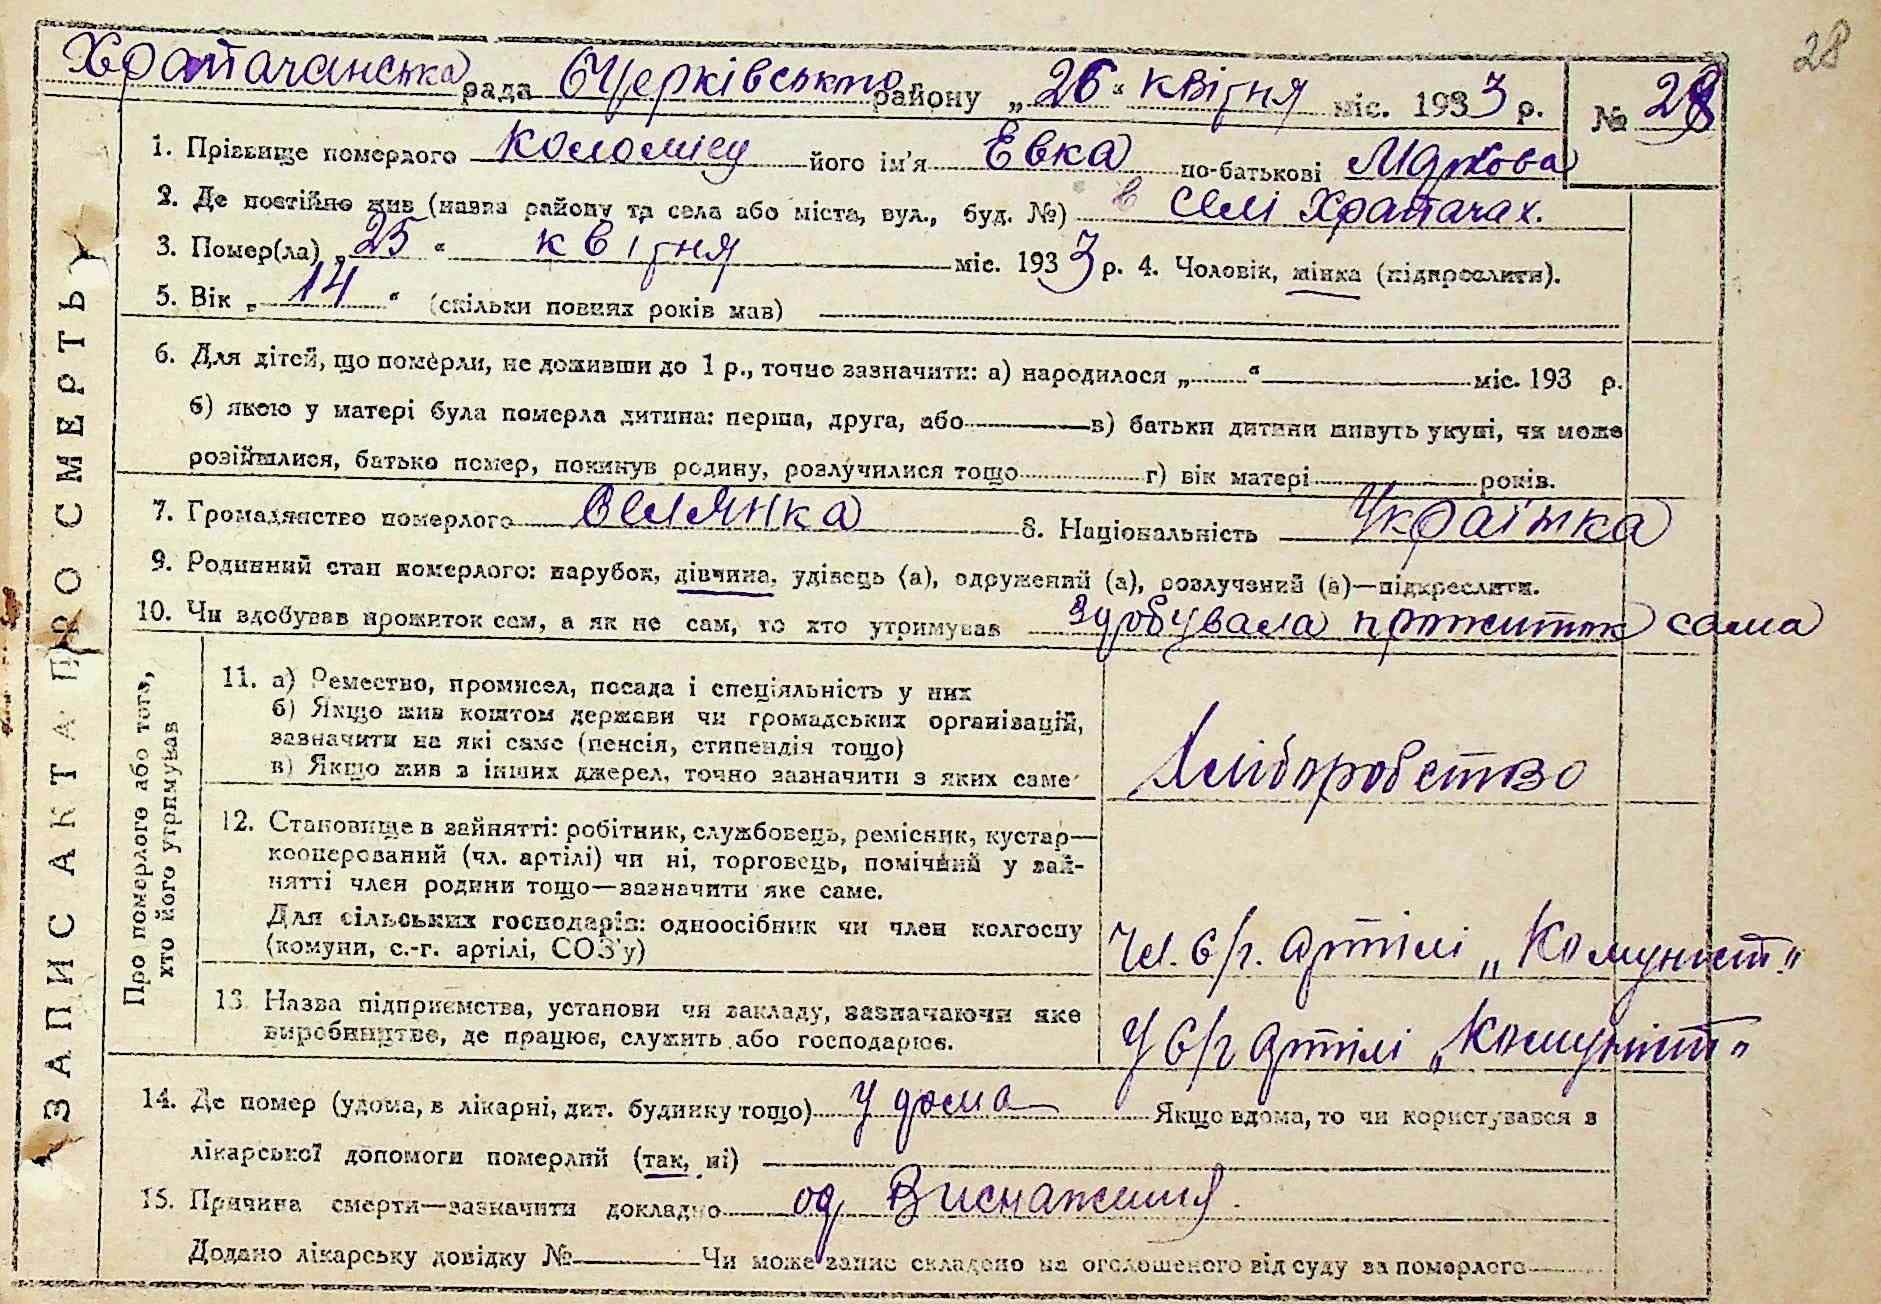 28
Храпачанська рада БЦерківського району „26“ квітня міс. 1933 р. № 28
1. Прізвище померлого Коломієц його ім'я Євка по-батькові Маркова
2. Де постійно жив (назва району та села або міста, вул., буд. №) в селі Храпачах.
3. Помер(ла) „25“ квітня міс. 1933 р. 4. Чоловік, жінка (підкреслити).
5. Вік „14“ (скільки повних років мав)
6. Для дітей, що померли, не доживши до 1 р., точно зазначити: а) народилося „ “ міс. 193 р.
б) якою у матері була померла дитина: перша, друга, або в) батьки дитини живуть укупі, чи може
розійшлися, батько помер, покинув родину, розлучилися тощо г) вік матері років.
7. Громадянство померлого селянка 8. Національність Українка
9. Родинний стан померлого: парубок, дівчина, удівець (а), одружений (а), розлучений (а)—підкреслити.
10. Чи здобував прожиток сам, а як не сам, то хто утримував здобувала прожиток сама
ЗАПИС АКТА ПРО СМЕРТЬ
Про померлого або того,
хто його утримував
11. а) Ремество, промисел, посада і спеціяльність у них
б) Якщо жив коштом держави чи громадських організацій,
зазначити на які саме (пенсія, стипендія тощо)
в) Якщо жив з інших джерел, точно зазначити з яких саме
Хліборобство
12. Становище в зайнятті: робітник, службовець, ремісник, кустар—
кооперований (чл. артілі) чи ні, торговець, помічний у зай-
нятті член родини тощо—зазначити яке саме.
Для сільських господарів: одноосібник чи член колгоспу
(комуни, с.-г. артілі, СОЗ'у)
Чл. с/г. артілі „Комуніст“
13. Назва підприємства, установи чи закладу, зазначаючи яке
виробництво, де працює, служить або господарює.
У с/г артілі „Комуніст“
14. Де помер (удома, в лікарні, дит. будинку тощо) У дома Якщо вдома, то чи користувався з
лікарської допомоги померлий (так, ні)
15. Причина смерти—зазначити докладно од Виснаження.
Додано лікарську довідку № Чи може запис складено на оголошеного від суду за померлого